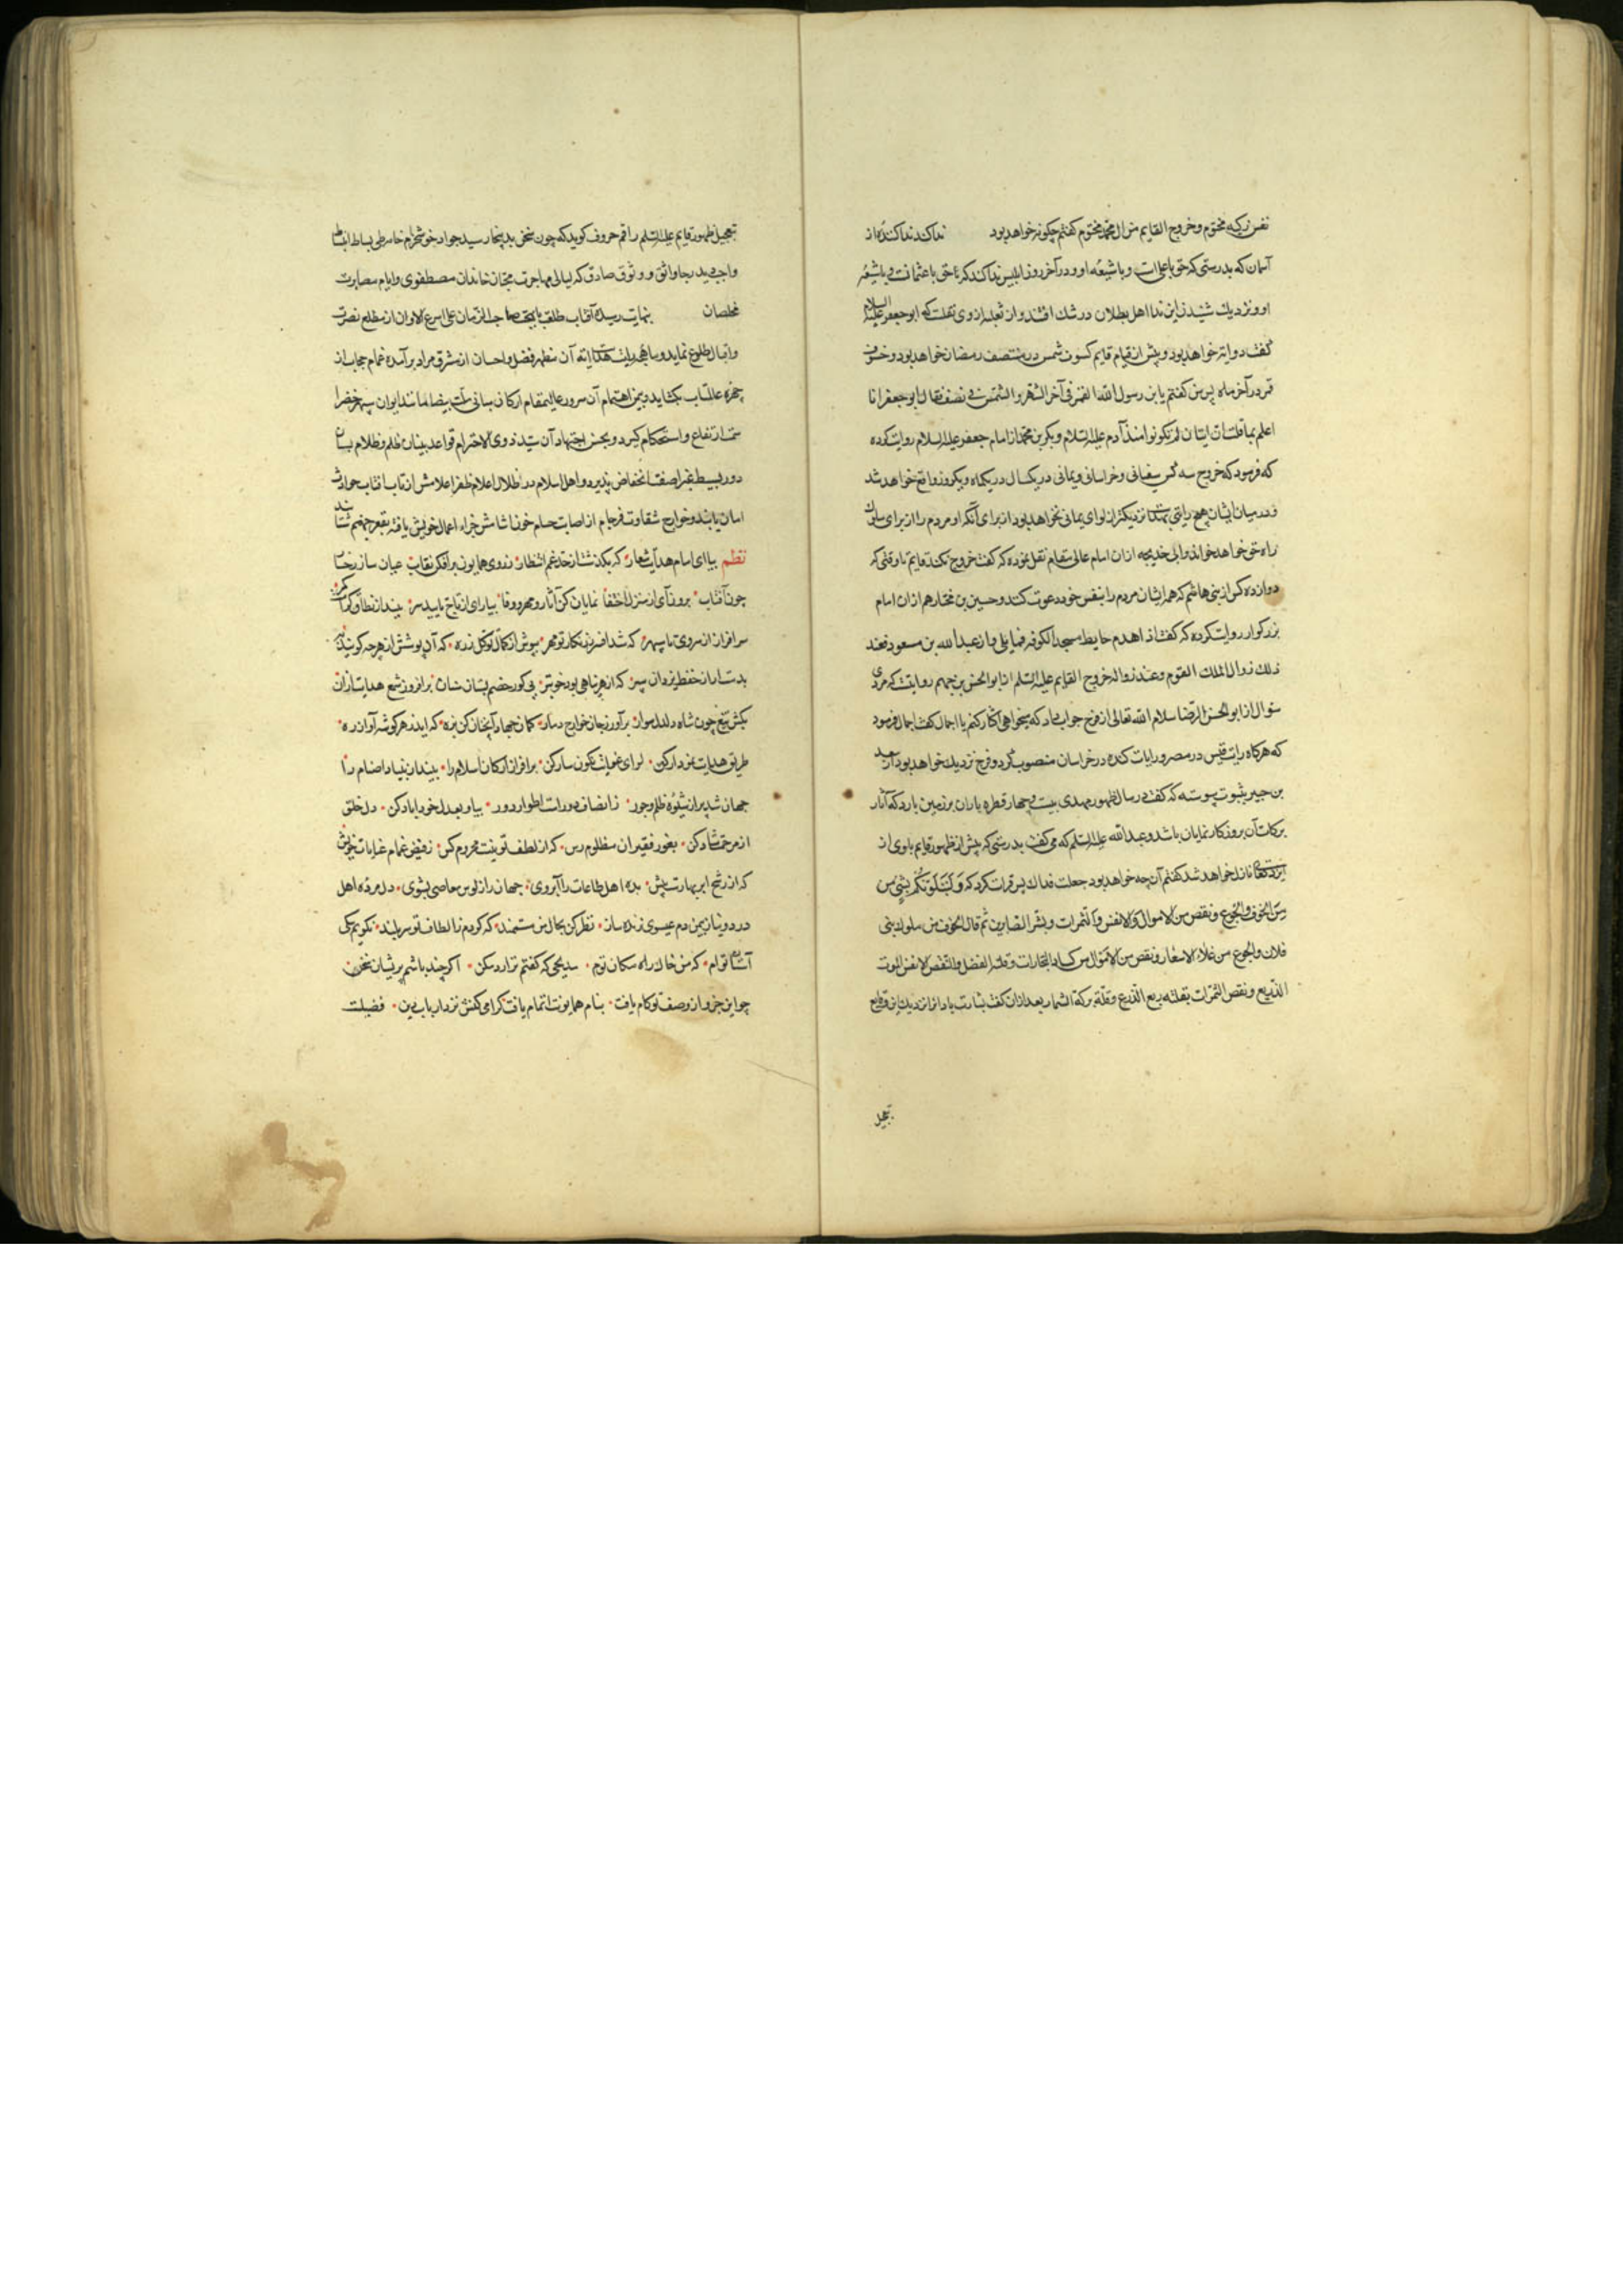 نفس زکیه محتوم و خروج القایم من ال محمد محتوم کفتم چکونه خواهد بود نداکند نداکننده از
آسمان که بدرستی که حق با علی است و با شیعه او و در آخر روز ابلیس نداکند که حق با عثمانست و با شیعهٔ
او و نزدیک شنیدن این ندا اهل بطلان در شک افتند و از ثعلبه از وی نقلست که ابو جعفر علیه السلام
کفت دو آیه خواهد بود و پیش از قیام قایم کسوف شمس در منتصف رمضان خواهد بود و خسوف
قمر در آخر ماه پس من کفتم یا بن رسول الله القمر فی آخر الشهر و الشمس فی نصف فقال ابو جعفر انا
اعلم بما قلت آیتان لم تکونوا منذ آدم علیه السلام و بکر بن محمد از امام جعفر علیه السلام روایت کرده
که فرمود که خروج سه کس سفیانی و خراسانی و یمانی در یکسال در یکماه و یکروز واقع خواهد شد
و در میان ایشان هیچ رایتی نزدیکتر از لوای یمانی نخواهد بود از برای آنکه او مردم را از برای
راه حق خواهد خواند و ابی خدیجه ازان امام عالی مقام نقل نموده که کفت خروج نکند قایم تا وقتی که
دوازده کس از بنی هاشم که همه ایشان مردم را بنفس خود دعوت کنند و حسین بن مختار هم ازان امام
بزرکوار روایت کرده که کفت اذا هدم حایط مسجد الکوفه مما یلی دار عبد الله بن مسعود فعند
ذلک زوال الملک القوم و عند زواله خروج القایم علیه السلم از ابو الحسن بن جهم روایتست که مردی
سؤال از ابو الحسن الرضا سلام الله تعالی از فرج جواب داد که میخواهی اکثار کنم یا اجمال کفت اجمال فرمود
که هرکاه رایت قیس در مصر و رایات کنده در خراسان منصوب کردد فرج نزدیک خواهد بود از سعید
بن جبیر بثبوت پیوسته که کفت در سال ظهور مهدی بیست و چهار قطره باران بر زمین بارد که آثار
برکات آن بروزکار نمایان باشد و عبد الله علیه السلم که می کفت بدرستی که پیش از ظهور قایم باوی از
ایزد تعالی نازل خواهد شد کفتم آن چه خواهد بود جعلت فداک پس قرات کرد که وَلَنَبْلُوَنَّکُم بِشَیءٍ مِن
مِنَ الخوف والجوع و نقص من الاموال و الانفس والثمرات و بشر الصابرین ثم قال الخوف من ملوک بنی
فلان والجوع من غلاء الاسعار و نقص من الاموال من کساد التجارات و قلة الفضل والنقص الانفس الموت
الذریع و نقص الثمرات بقلة ریع الذرع و قلّة برکة الثمار بعد ازان کفت بشارت باد
تعجیل
تعجیل ظهور قایم علیه السلم راقم حروف کوید که چون سخن بدینجا رسید جواد خوشخرام خامه طی بساط انبساط
واجب دید رجا واثق و وثوق صادق که لیالی مهاجرت محبان خاندان مصطفوی و ایام مصابرت
مخلصان بنهایت رسیده آفتاب طلعت صاحب الزمان علی اسرع الاوان از مطلع نصرت
و اقبال طلوع نماید و ماهچه رایت هدایت آن مظهر فضل و احسان از مشرق مراد برآمده غمام حجاب از
چهره عالمتاب بکشاید و بیمن اهتمام آن سرور عالیمقام ارکان مبانی ملت بیضا مانند ایوان سپهر خضرا
سمت ارتفاع و استحکام کیرد و بحسن اجتهاد آن سید ذوی الاحترام قواعد بنیان ظلم و ظلام
در بسیط غبرا صفت انخفاض پذیرد و اهل اسلام در ظلال اعلام ظفر اعلامش از تاب آفتاب حوادث
امان یابند و خوارج شقاوت فرجام از اصابت حسام خون آشامش جزاء اعمال خویش یافته بقعر جهنم شتابند
نظم بیا ای امام هدایت شعار که بکذشت از حد غم انتظار ز روی همایون برافکن نقاب عیان ساز رخسار
چون آفتاب برون آی از منزل اختفا نمایان کن آثار و مهر و وفا بیارای از تاج تایید سر ببند از نطاق کرامت کمر
سرافراز از سروی تا سپهر که شد افسر بپوش از کمال توکل زره که آن پوشش از هرچه کوییند
بدست آر از حفظ یزدان سپر که از هر پناهی بود خوبتر پی کور خصم بستان شان برافروز شمع هدایت ازان
بکش تیغ چون شاه دلدل سوار برآور ز جان خوارج دمار کمان جهاد آنچنان کن بزه که آید ز هر کوشه آواز زه
طریق هدایت نمودار کن لوای غوایت نکونسار کن برافراز ارکان اسلام را بینداز بنیاد اصنام را
جهان شد پر از شیوهٔ ظلم و جور ز انصاف دورست اطوار دور بیا و بعدل خود آباد کن دل خلق
از مرحمت شاد کن بغور فقیران مظلوم رس که از لطف تو نیست محروم کس ز فیض غمام عنایات خویش
که از رشح ابر بهارست بیش بده اهل طاعات را آبروی جهان را ز لوس معاصی بشوی دل مرده اهل
درد و نیاز بیمن دم عیسوی زنده ساز نظر کن بحال من مستمند که کردم ز الطاف تو سربلند نکویم سک
آستان توام که من خاک راه سکان توم مدیحی که کفتم نزار د سکن اکر چند باشم پریشان سخن
چو این جزو از وصف تو کام یافت بنام همایونت اتمام یافت کرامی کنش نزد ارباب دین فضیلت